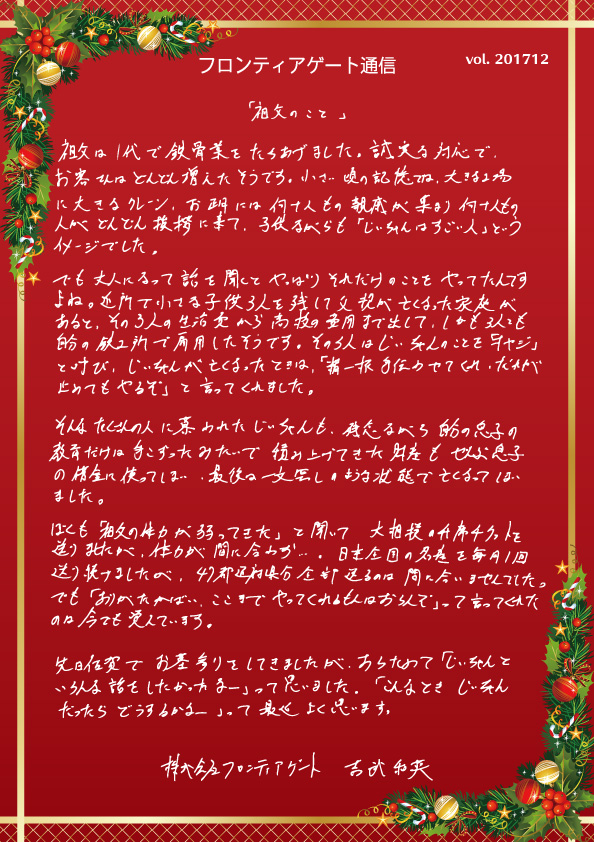 フロンティアゲート通信
vol. 201712
「祖父のこと」
祖父は1代で鉄骨業をたちあげました。誠実な対応で、
お客さんはどんどん増えたそうです。小さい頃の記憶では、大きな工場
に大きなクレーン、お正月には何十人もの親戚が集まり何十人もの
人がどんどん挨拶に来て、子供ながらも「じいちゃんはすごい人」という
イメージでした。
でも大人になって話を聞くとやっぱりそれだけのことをやってたんです
よね。近所で小さな子供3人を残して父親が亡くなった家庭が
あると、その3人の生活費から高校の費用まで出して、しかも3人とも
自分の鉄工所で雇用したそうです。その3人はじいちゃんのことを「オヤジ」
と呼び、じいちゃんが亡くなったときは、「骨一根 手伝わせてくれ、だれが
止めてもやるぞ」と言ってくれました。
そんなたくさんの人に慕われたじいちゃんも、残念ながら自分の息子の
教育だけは手こずったみたいで積み上げてきた財産も 息子
の借金に使ってしまい、最後は一文無しのような状態で亡くなってしまい
ました。
ぼくも「祖父の体力が弱ってきた」と聞いて 大相撲の升席チケットを
送りましたが、体力が間に合わず…。日本全国の名産を毎月1回
送り続けましたが、47都道府県分全部送るのは間に合いませんでした。
でも「ありがたかばい、ここまでやってくれるもんはおらんで」って言ってくれた
のは今でも覚えています。
先日佐賀でお墓参りをしてきましたが、あらためて「じいちゃんと
いろんな話をしたかったなー」って思いました。「こんなとき じいちゃん
だったら どうするかなー」って最近よく思います。
株式会社フロンティアゲート 吉武和英